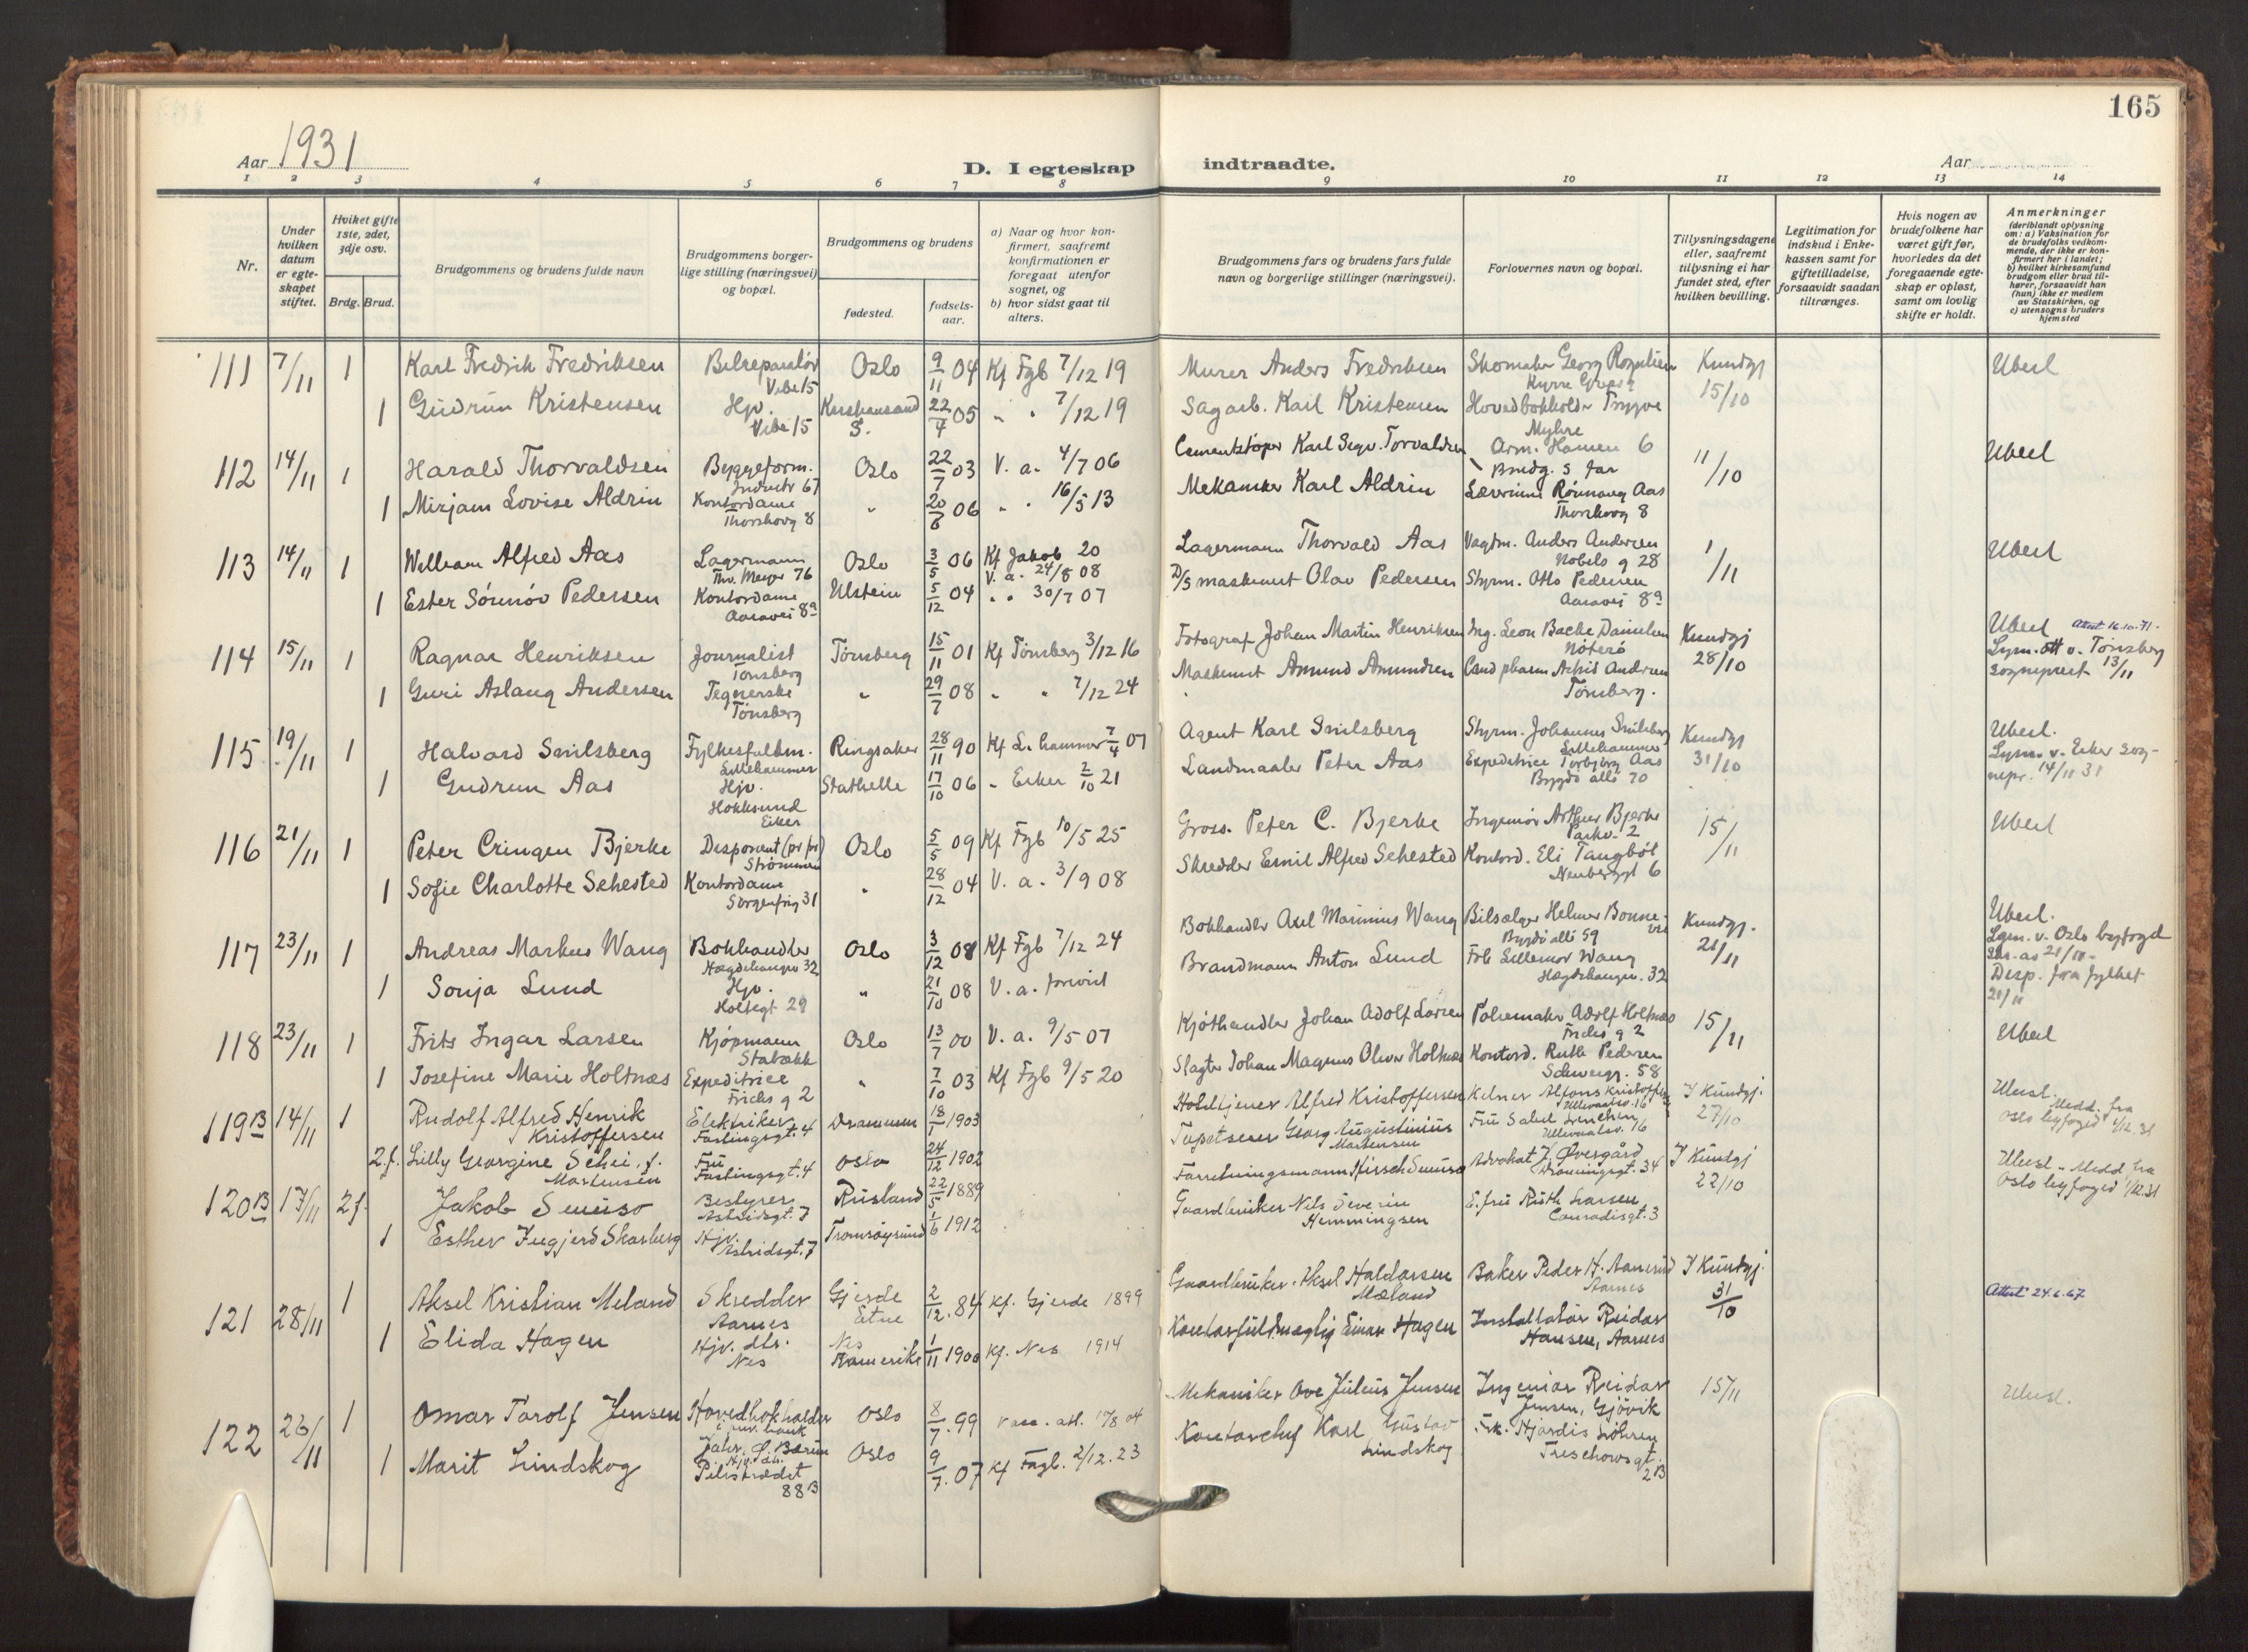 165
Aar 1931
D. I egteskap indtraadte.
Aar
1 2 3 4 5 6 7 8 9 10 11 12 13 14
Nr.
Under hvilken datum er egteskapet stiftet.
Hviket gifte 1ste, 2det, 3dje osv.
Brdg. Brud.
Brudgommens og brudens fulde navn
Brudgommens borgerlige stilling (næringsvei) og bopæl.
Brudgommens og brudens
fødested.
fødselsaar.
a) Naar og hvor konfirmert, saafremt konfirmationen er foregaat utenfor sognet, og
b) hvor sidst gaat til alters.
Brudgommens fars og brudens fars fulde navn og borgerlige stillinger (næringsvei).
Forlovernes navn og bopæl.
Tillysningsdagene eller, saafremt tillysning ei har fundet sted, efter hvilken bevilling.
Legitimation for indskud i Enkekassen samt for giftetilladelse, forsaavidt saadan tiltrænges.
Hvis nogen av brudefolkene har været gift før, hvorledes da det foregaaende egteskap er opløst, samt om lovlig skifte er holdt.
Anmerkninger
(deriblandt oplysning om: a) Vaksination for de brudefolks vedkommende, der ikke er konfirmert her i landet; b) hvilket kirkesamfund brudgom eller brud tilhører, forsaavidt han (hun) ikke er medlem av Statskirken, og c) utensogns bruders hjemsted
111 7/11 1 Karl Fredrik Fredriksen Bilreparatør Oslo 9/11 04 Kf Fgb 7/12 19 Murer Anders Fredriksen Skomaker Georg Kundgj
Vibe 15
1 Gudrun Kristensen Hjv. Kristiansand 22/4 05 " " 7/12 19 Sagarb. Karl Kristensen Hovedbokholder Trygve 15/10
Vibe 15 S. Myhre
Arm. Hansen 6
112 14/11 1 Harald Thorvaldsen Byggeform. Oslo 22/7 03 V. a. 4/7 06 Cementstøper Karl Sigv. Torvaldsen Brudg. s far 11/10
Industr 67
1 Mirjam Lovise Aldrin Kontordame " 20/6 06 " " 16/5 13 Mekaniker Karl Aldrin Rønnaug Aas
Thorshovg 8 Thorshovg 8
113 14/11 1 William Alfred Aas Lagermann Oslo 3/5 06 Kf Jakob 20 Lagermann Thorvald Aas Vagtm. Anders Andersen 1/11
Thv. Meyer 76 V. a. 24/8 08 Nobels g 28
1 Ester Sørunøv Pedersen Kontordame Ulstein 5/12 04 " " 30/7 07 D/S maskinist Olav Pedersen Styrm. Otto Pedersen
Aaravei 8a Aaravei 8a
114 15/11 1 Ragnar Henriksen Journalist Tønsberg 15/11 01 Kf Tønsberg 3/12 16 Fotograf Johan Martin Henriksen Ing. Leon Backe Danielsen Kundgj Attest 16.10.71.
Tønsberg Nøterø 28/10 Lysn. att v. Tønsberg
1 Guri Aslaug Andersen Tegnerske " 29/7 08 " " 7/12 24 Maskinist Amund Amundsen Cand pharm Astrid Andersen sogneprest 13/11
Tønsberg Tønsberg.
115 19/11 1 Halvard Smilsberg Fylkesfullm. Ringsaker 28/11 90 Kf L. hammer 7/4 07 Agent Karl Smilsberg Styrm. Johannes Smilsberg Kundgj
Lillehammer Lillehammer 31/10
1 Gudrun Aas Hjv. Stathelle 17/10 06 " Eiker 2/10 21 Landmaaler Peter Aas Expeditrice Torbjørg Aas Lysn. v. Eiker sognepr. 14/11 31
Hokksund Bygdø allé 70
Eiker
116 21/11 1 Peter Cringen Bjerke Disponent Oslo 5/5 09 Kf Fgb 10/5 25 Gross. Peter C. Bjerke Ingeniør Arthur Bjerke 15/11
Strømmen Parkv. 2
1 Sofie Charlotte Sehested Kontordame " 28/12 04 V. a. 3/9 08 Skredder Emil Alfred Sehested Kontord. Eli Tangbøl
Sorgenfrig 31 Neuberggt 6
117 23/11 1 Andreas Markus Wang Bokhandler Oslo 3/12 08 Kf Fgb 7/12 24 Bokhandler Axel Marinius Wang Bilsælger Helmer Bonnevie Kundgj.
Hægdehaugsv 32 Bygdø allé 59 21/11
1 Sonja Lund Hjv. " 21/10 08 V. a. forevist Brandmann Anton Lund Frk Lillemor Wang Lysn. v. Oslo byfoged
Holtegt 29 Hægdehaugsv. 32 Disp. fra fylket
21/11
118 23/11 1 Frits Ingar Larsen Kjøpmann Oslo 13/7 00 V. a. 9/5 07 Kjøthandler Johan Adolf Larsen Pølsemaker Adolf Holtnæs 15/11
Stabækk Fricks g 2
1 Josefine Marie Holtnæs Expeditrice " 7/10 03 Kf Fgb 9/5 20 Slagter Johan Magnus Oliver Holtnæs Kontord. Ruth Pedersen
Fricks g 2 Schweigg. 58
119B 14/11 1 Rudolf Alfred Henrik Kristoffersen Elektriker Drammen 18/1 1903 Hotelltjener Alfred Kristoffersen Kelner Alfons Kristoffersen I Kundgj.
Fastingsgt. 4 Ullevaalsv. 16 27/10 Medd. fra Oslo byfoged 1/12 31
2.f. Lilly Georgine Schei, f. Martensen Fru Oslo 24/12 1902 Tapetserer Georg Augustinius Martensen
Fastingsgt. 4 Ullevaalsv. 16
120B 17/11 2f. Jakob Smuiso Bestyrer Rusland 22/5 1889 Forretningsmann Hirsch Smuiso Advokat J. Øvergård I Kundgj Medd. fra
Astridsgt. 7 34 22/10 Oslo byfoged 1/12 31
1 Esther Ingjerd Skarberg Hjv. Tromsøysund 1/6 1912 Gaardbruker Nils Severin Hemmingsen E. fru Ruth Larsen
Astridsgt. 7 Conradisgt. 3
121 28/11 1 Aksel Kristian Meland Skredder Gjerde 2/12.84 Kf. Gjerde 1899 Gaardbruker Aksel Haldorsen Mæland Baker Peder H. Aamerud I Kundgj. Attest 24.6.67
Aarnes Etne Aarnes 31/10
1 Elida Hagen Hjv. dtr. Nes 1/11 1900 Kf. Nes 1914 Kontorfullmægtig Einar Hagen Installatør Reidar
Nes Romerike Hansen, Aarnes
122 26/11 1 Omar Torolf Jensen Hovedbokholder Oslo 8/7.99 Vacc. att. 17/8 04 Mekaniker Ove Julius Jensen Ingeniør Reidar 15/11
Jensen, Gjøvik
1 Marit Lindskog Oslo 9/7.07 Kf Fagb. 2/12.23 Kontorchef Karl Gustav Lindskog Frk. Hjørdis
Pilestrædet Treschowsgt.
88B 2B